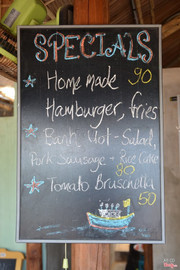 SPECIALS
Home made 90
Hamburger, fries
Hot - Salad,
Pork Sausage - Rice Cake
80
Tomato Bruschetta
50